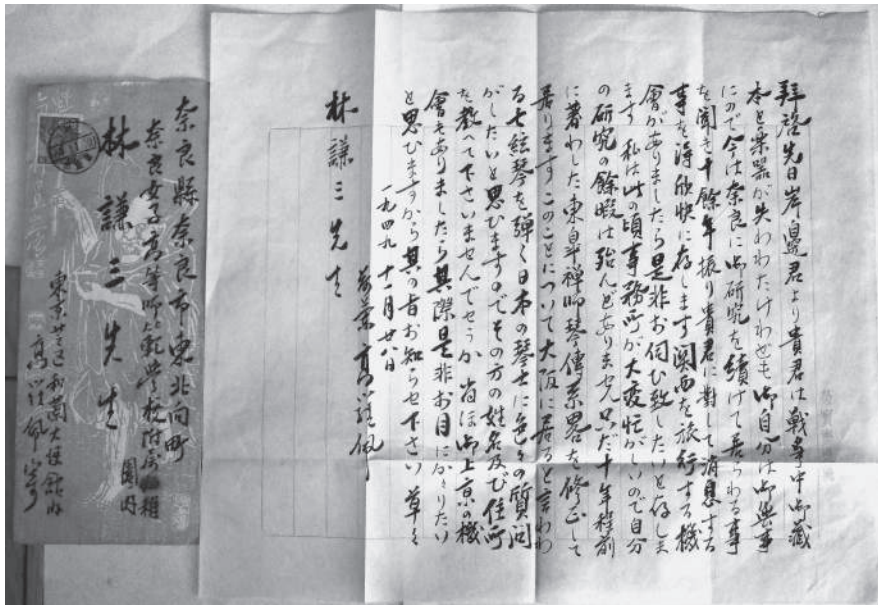 拜啓先日岸邊君より貴君は戰爭中御藏
本と楽器が失われたけれども御自分は御無事
にので今は奈良に御研究を續けて居られる事
を聞き十餘年振り貴君に對して消息する
事を得欣快に存します 関西を旅行する機
會がありましたら是非お伺ひ致したいと存じ
ます 私は此の頃事務所が大変忙がしいので自分
の研究の餘暇は殆んどありません 只だ十年程前
に著わした東皐禅師琴傳系畧を修正して
居ります このことについて大阪に居ると言われ
る七絃琴を弾く日本の琴士に色々の質問
がしたいと思ひますのでその方の姓名及び住所
を教へて下さいませんでせうか 尚ほ御上京の機
會もありましたら其際是非お目にかゝりたい
と思ひますから其の旨お知らせ下さい 草々
一九四九 十一月 廿八日
高羅佩
林謙三先生
奈良縣奈良市東北向町
奈良女子高等師範學校附属幼稚
園内
林謙三先生
東京芝区和蘭大使館内
高羅佩寄